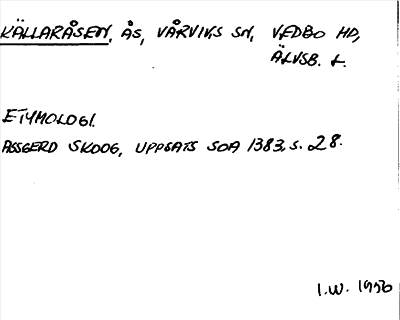 KÄLLARÅSEN, ÅS, VÅRVIKS SN, VEDBO HD,
ÄLVSB. L.
ETYMOLOGI.
ASSGERD SKOOG, UPPSATS SOA 1383, S. 28.
I.W. 1976